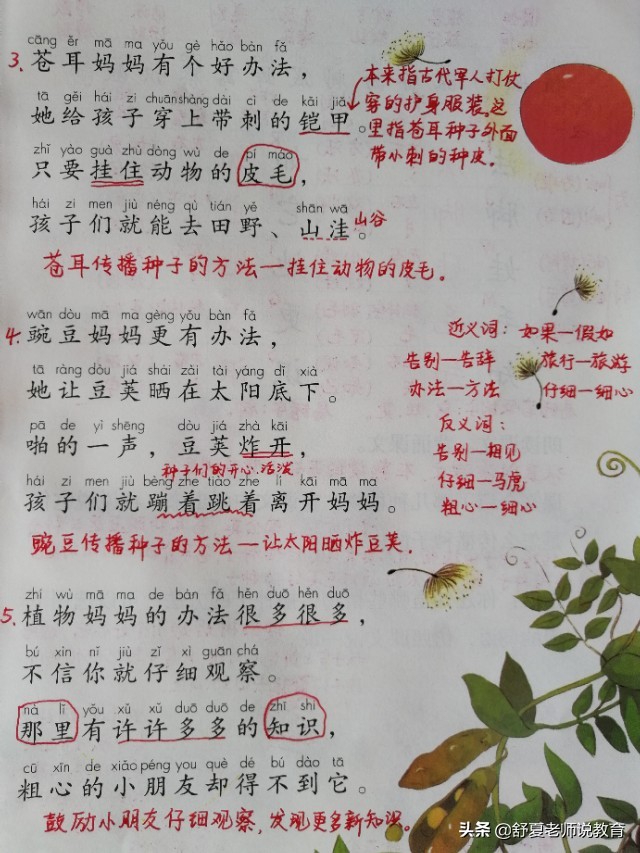 cāng ěr mā ma yǒu gè hǎo bàn fǎ
3. 苍耳妈妈有个好办法，
tā gěi hái zi chuān shàng dài cì de kǎi jiǎ
她给孩子穿上带刺的铠甲。
本来指古代军人打仗
穿的护身服装。这
里指苍耳种子外面
带小刺的种皮。
zhǐ yào guà zhù dòng wù de pí máo
只要挂住动物的皮毛，
hái zi men jiù néng qù tián yě shān wā
孩子们就能去田野、山洼。山谷
苍耳传播种子的方法—挂住动物的皮毛。
wān dòu mā ma gèng yǒu bàn fǎ
4. 豌豆妈妈更有办法，
tā ràng dòu jiá shài zài tài yáng dǐ xià
她让豆荚晒在太阳底下。
pā de yì shēng dòu jiá zhà kāi
啪的一声，豆荚炸开，
种子们的开心.活泼
hái zi men jiù bèng zhe tiào zhe lí kāi mā ma
孩子们就蹦着跳着离开妈妈。
豌豆传播种子的方法—让太阳晒炸豆荚.
近义词：如果—假如
告别—告辞 旅行—旅游
办法—方法 仔细—细心
反义词：
告别—相见
仔细—马虎
粗心—细心
zhí wù mā ma de bàn fǎ hěn duō hěn duō
5. 植物妈妈的办法很多很多，
bú xìn nǐ jiù zǐ xì guān chá
不信你就仔细观察。
nà lǐ yǒu xǔ xǔ duō duō de zhī shi
那里有许许多多的知识，
cū xīn de xiǎo péng you què dé bú dào tā
粗心的小朋友却得不到它。
鼓励小朋友仔细观察，发现更多新知识。
头条 @舒夏老师说教育